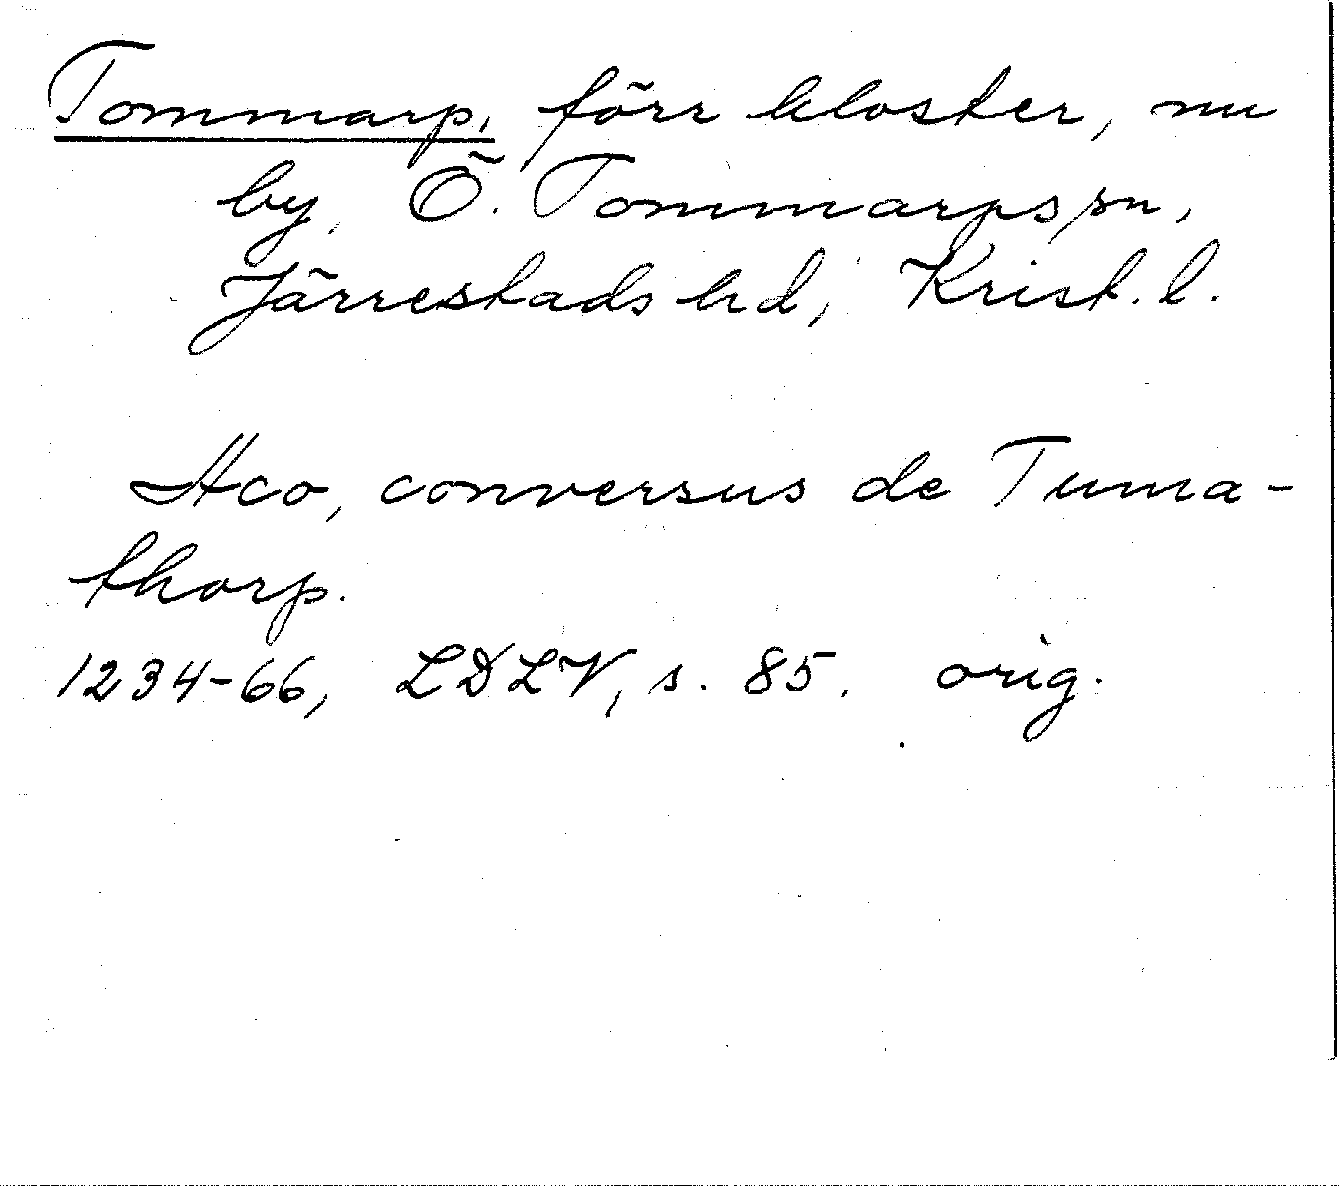 Tommarp, förr kloster, nu
by, Ö. Tommarps sn,
Järrestads hd, Krist. l.
Aco, conversus de Tuma-
thorp.
1234-66, LDLV, s. 85. orig.